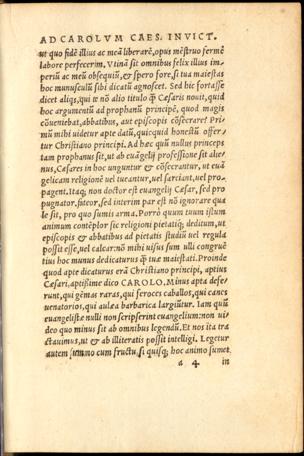 AD CAROLVM CAES. INVICT.
ut quo fidē illius ac meā liberarē, opus mēstruo fermē
labore perfecerim. Vtinā sit omnibus felix illius im-
periū ac meū obsequiū, & spero fore, si tua maiestas
hoc munusculū sibi dicatū agnoscet. Sed hic fortasse
dicet aliqs, qui te nō alio titulo q̃ Cæsaris nouit, quid
hoc argumentū ad prophanū principē, quod magis
cōueniebat, abbatibus, aut episcopis cōsecrare? Pri-
mū mihi uidetur apte datū, quicquid honestū offer-
tur Christiano principi. Ad hæc quū nullus princeps
tam prophanus sit, ut ab euāgelij professione sit alie-
nus, Cæsares in hoc unguntur & cōsecrantur, ut euā
gelicam religionē uel tueantur, uel sarciant, uel pro-
pagent. Itaq; non doctor est euangelij Cæsar, sed pro
pugnator, fateor, sed interim par est nō ignorare qua
le sit, pro quo sumis arma. Porrò quum tuum istum
animum contēplor sic religioni pietatiq; deditum, ut
episcopis & abbatibus ad pietatis studiū uel regula
possit esse, uel calcar: nō mihi uisus sum ulli congruē
tius hoc munus dedicaturus q̃ tuæ maiestati. Proinde
quod apte dicaturus erā Christiano principi, aptius
Cæsari, aptissime dico CAROLO. Minus apta defe-
runt, qui gēmas raras, qui feroces caballos, qui canes
uenatorios, qui aulea barbarica largiūtur. Iam quū
euangelistæ nulli non scripserint euangelium: non ui-
deo quo minus sit ab omnibus legendū. Et nos ita tra
ctauimus, ut & ab illiteratis possit intelligi. Legetur
autem summo cum fructu, si quisq; hoc animo sumet
a 4 in